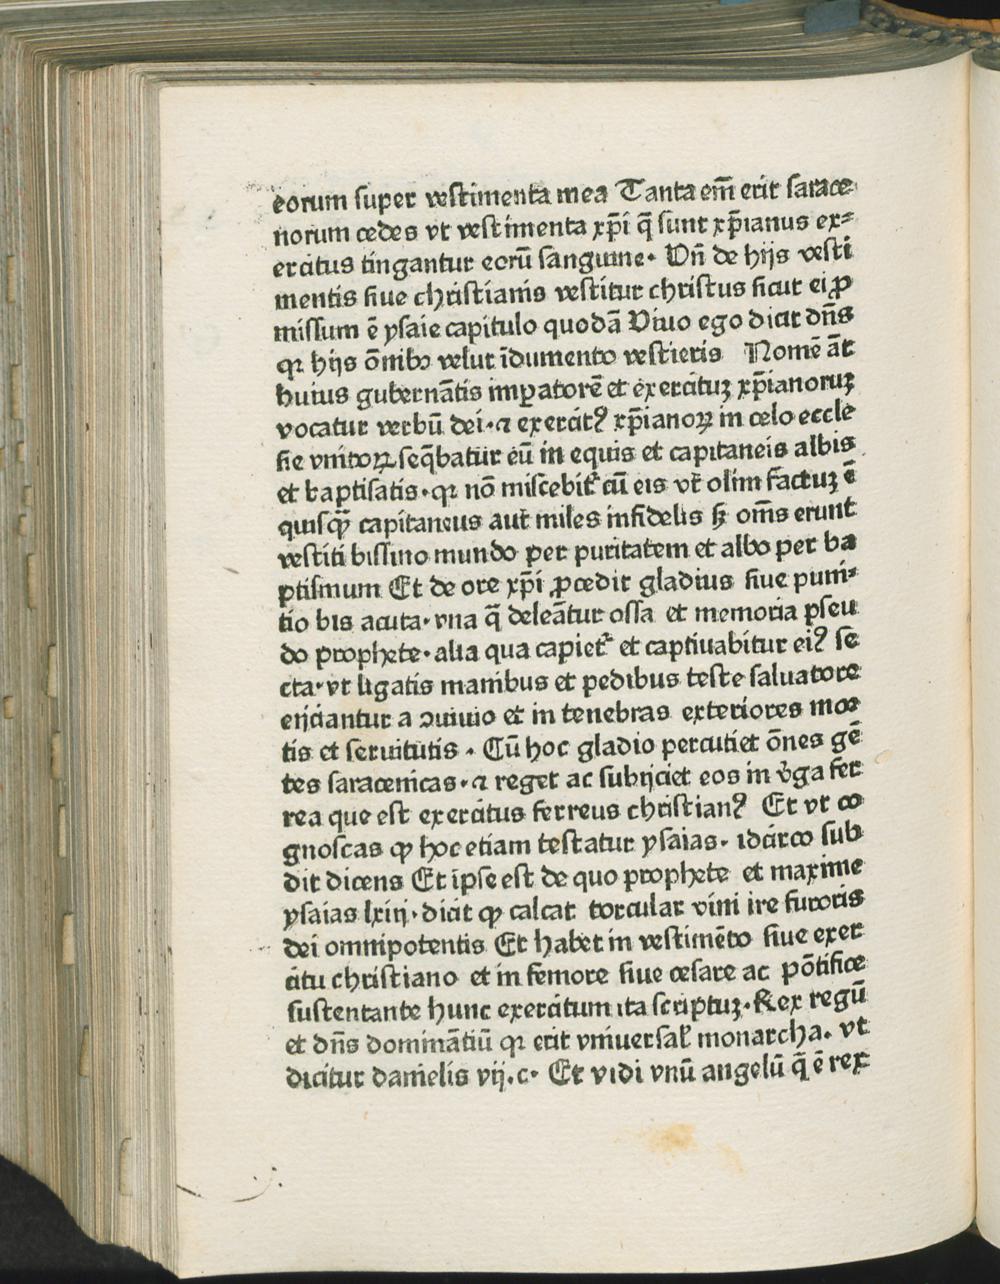 eorum super vestimenta mea Tanta em̄ erit sarace
norum cedes vt vestimenta xp̄i q̄ sunt xp̄ianus ex⸗
ercitus tingantur eorū sanguine. Vn̄ de hijs vesti
mentis siue christianis vestitur christus sicut ei ꝓ
missum ē ysaie capitulo quodā Viuo ego dicit dn̄s
qꝛ hijs ōnibo velut īdumento vestieris Nomē āt
huius gubernātis imꝑatorē et exercituꝫ xp̄ianoruꝫ
vocatur verbū dei. ⁊ exercitꝰ xp̄ianoꝝ in celo eccle
sie vnitoꝝ seq̄batur eū in equis et capitaneis albis
et baptisatis. qꝛ nō miscebit᷑ cū eis vt᷑ olim factuꝫ ē
quisqꝫ̄ capitaneus aut miles infidelis sꝫ om̄s erunt
vestiti bissino mundo per puritatem et albo per ba
ptismum Et de ore xp̄i ꝓcedit gladius siue puni⸗
tio bis acuta. vna q̄ deleātur ossa et memoria pseu
do prophete. alia qua capiet᷑ et captiuabitur eiꝰ se
cta. vt ligatis manibus et pedibus teste saluatore
eijciantur a ↄuiuio et in tenebras exteriores mor
tis et seruitutis. Cū hoc gladio percutiet ōnes gē
tes saracenicas. ⁊ reget ac subijciet eos in v̓ga fer
rea que est exercitus ferreus christianꝰ Et vt co
gnoscas ꝙ hoc etiam testatur ysaias. idcirco sub
dit dicens Et ip̄se est de quo prophete et maxime
ysaias lxiij. dicit ꝙ calcat torcular vini ire furoris
dei omnipotentis Et habet in vestimēto siue exer
citu christiano et in femore siue cesare ac pōtifice
sustentante hunc exercitum ita scriptuꝫ. Rex regū
et dn̄s dominātiū qꝛ erit vniuersal̄ monarcha. vt
dicitur danielis vij. c. Et vidi vnū angelū q̄ ē rex